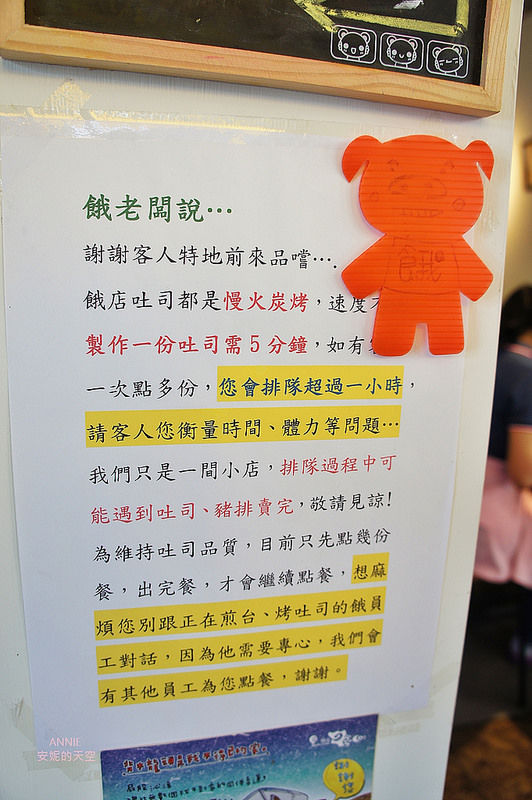 餓老闆說…
謝謝客人特地前來品嚐….
餓店吐司都是慢火炭烤，速度
製作一份吐司需5分鐘，如有
一次點多份，您會排隊超過一小時，
請客人您衡量時間、體力等問題…
我們只是一間小店，排隊過程中可
能遇到吐司、豬排賣完，敬請見諒!
為維持吐司品質，目前只先點幾份
餐，出完餐，才會繼續點餐，想麻
煩您別跟正在煎台、烤吐司的餓員
工對話，因為他需要專心，我們會
有其他員工為您點餐，謝謝。
餓
謝謝您
ANNIE
安妮的天空